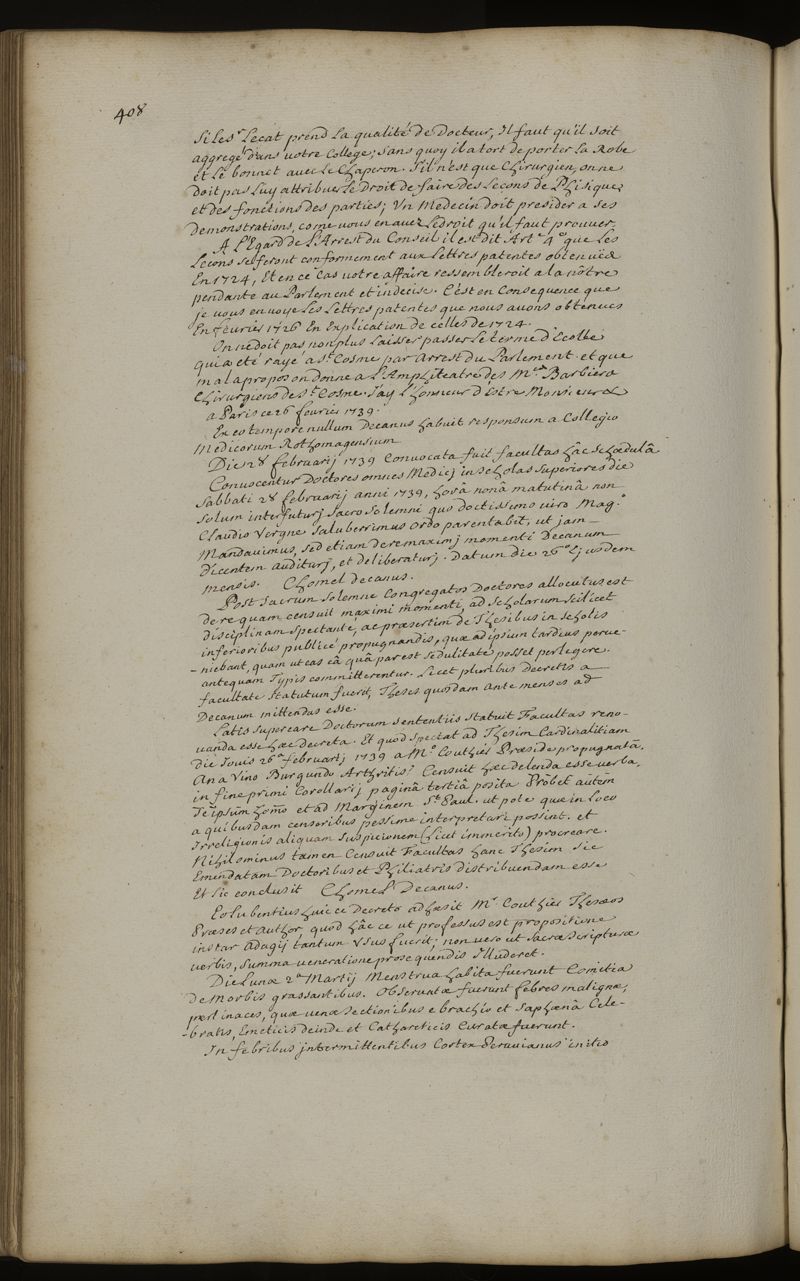 408
Si Le Sr. Lecat prend La qualité de Docteur, Il faut qu'il soit
aggregé dans votre College; sans quoy il a tort de porter La Robe
et Le bonnet avec Le Chaperon. S'il n'est que Chirurgien, on ne
doit pas Luy attribuer Le Droit de faire des Leçons de Phisique
et des fonctions des parties; Un Medecin doit presider a ses
demonstrations, come vous en avez Le droit qu'il faut prouver.
A L'Egard de L'Arrest du Conseil il est dit Art.e 4.o que Les
Leçons se feront conformement aux Lettres patentes obtenues
En 1724, Et en ce Cas votre affaire ressembleroit a la nôtre
pendante au Parlement et indecise. C'est en Consequence que
je vous envoye Les Lettres patentes que nous avons obtenues
En fevrier 1726 En Explication de celles de 1724.
On ne doit pas non plus Laisser passer Le terme d'Ecolle
qui a eté rayé a St. Cosme par Arrest du Parlement et que
mal a propos on donne a L'Amphiteatre des Mes. Barbiers
Chirurgiens de St. Cosme. J'ay L'Honneur d'Estre Monsieur &
a Paris ce 26 fevrier 1739.
Ex eo tempore nullum Decanus habuit responsum a Collegio
Medicorum Rothomagensium
Die 28 februarij 1739 Convocata fuit facultas hâc schedulâ
Convocentur Doctores omnes Medicj in scholas superiores die
Sabbati 28 februarij anni 1739, horâ nonâ matutinâ non
solum interfuturj sacro solemni quo doctissimo viro Mag.o
Claudio Vergne saluberrimus ordo parentabit, ut jam
Mandavimus, sed etiam de re maximj momenti Decanum
Dicentem audituri, et deliberaturj. Datum die 26a. Ejusdem
mensis. Chomel decanus.
Post sacrum solemne Congregatos Doctores allocutus est
de re quam censuit maximi momenti, ad scholarum scilicet
disciplinam spectante, ac præsertim de Thesibus in scholis
inferioribus publicé propugnandis, quæ ad ipsum tardius perve-
-niebant, quam ut eas eâ quâ par est sedulitate posset perlegere.
antequam Typis committerentur. Licet pluribus Decretis a
facultate statutum fuerit, Theses quosdam ante menses ad
Decanum mittendas esse.
Latis super eare Doctorum sententiis statuit Facultas reno-
vanda esse hæc decreta. Et quod spectat ad Thesim Cardinalitiam
Die Jovis 26a februarij 1739 a Mo. Couthier Præside propugnatâ,
An a Vino Burgundo Arthritis? Censuit hæc delenda esse verba,
in fine primi Corollarij paginâ tertiâ posita Probet autem
se ipsum homo et ad Marginem St. Paul. ut pote quæ in loco
a quibusdam censoribus pessime interpretari possint. et
Irreligionis aliquam suspicionem (licet immerito) procreare.
Nihilominus tamen Censuit Facultas hanc Thesim sic
Emendatam Doctoribus et Philiatris distribuendam esse
Et sic conclusit Chomel Decanus.
Eo lubentius huic ce Decreto adhæsit Mr. Couthier Theseos
Præses et Author, quod hâc ce ut professus est propositione
instar Adagij tantum Usus fuerit; non vero ut Sacræ Scripturæ
verbis, summa veneratione prosequendis Illuderet.
Die Lunæ 2a Martij Menstrua habita fuerunt Comitia
De Morbis grassantibus. Observatæ fuerunt febres malignæ,
pertinaces, quæ venæ sectionibus e brachio et saphænâ Cele-
-bratis, Emeticis deinde et Catharticis Curatæ fuerunt.
In febribus jntermittentibus Cortex Peruvianus initio